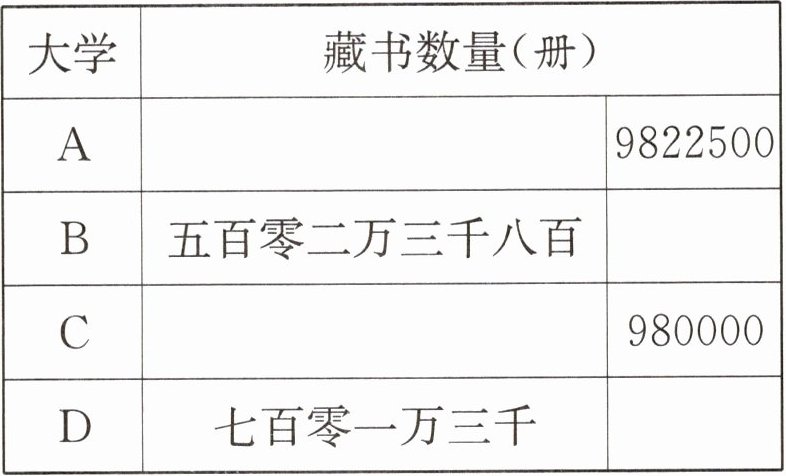 大学 藏书数量(册)
A 9822500
B 五百零二万三千八百
C 980000
D 七百零一万三千